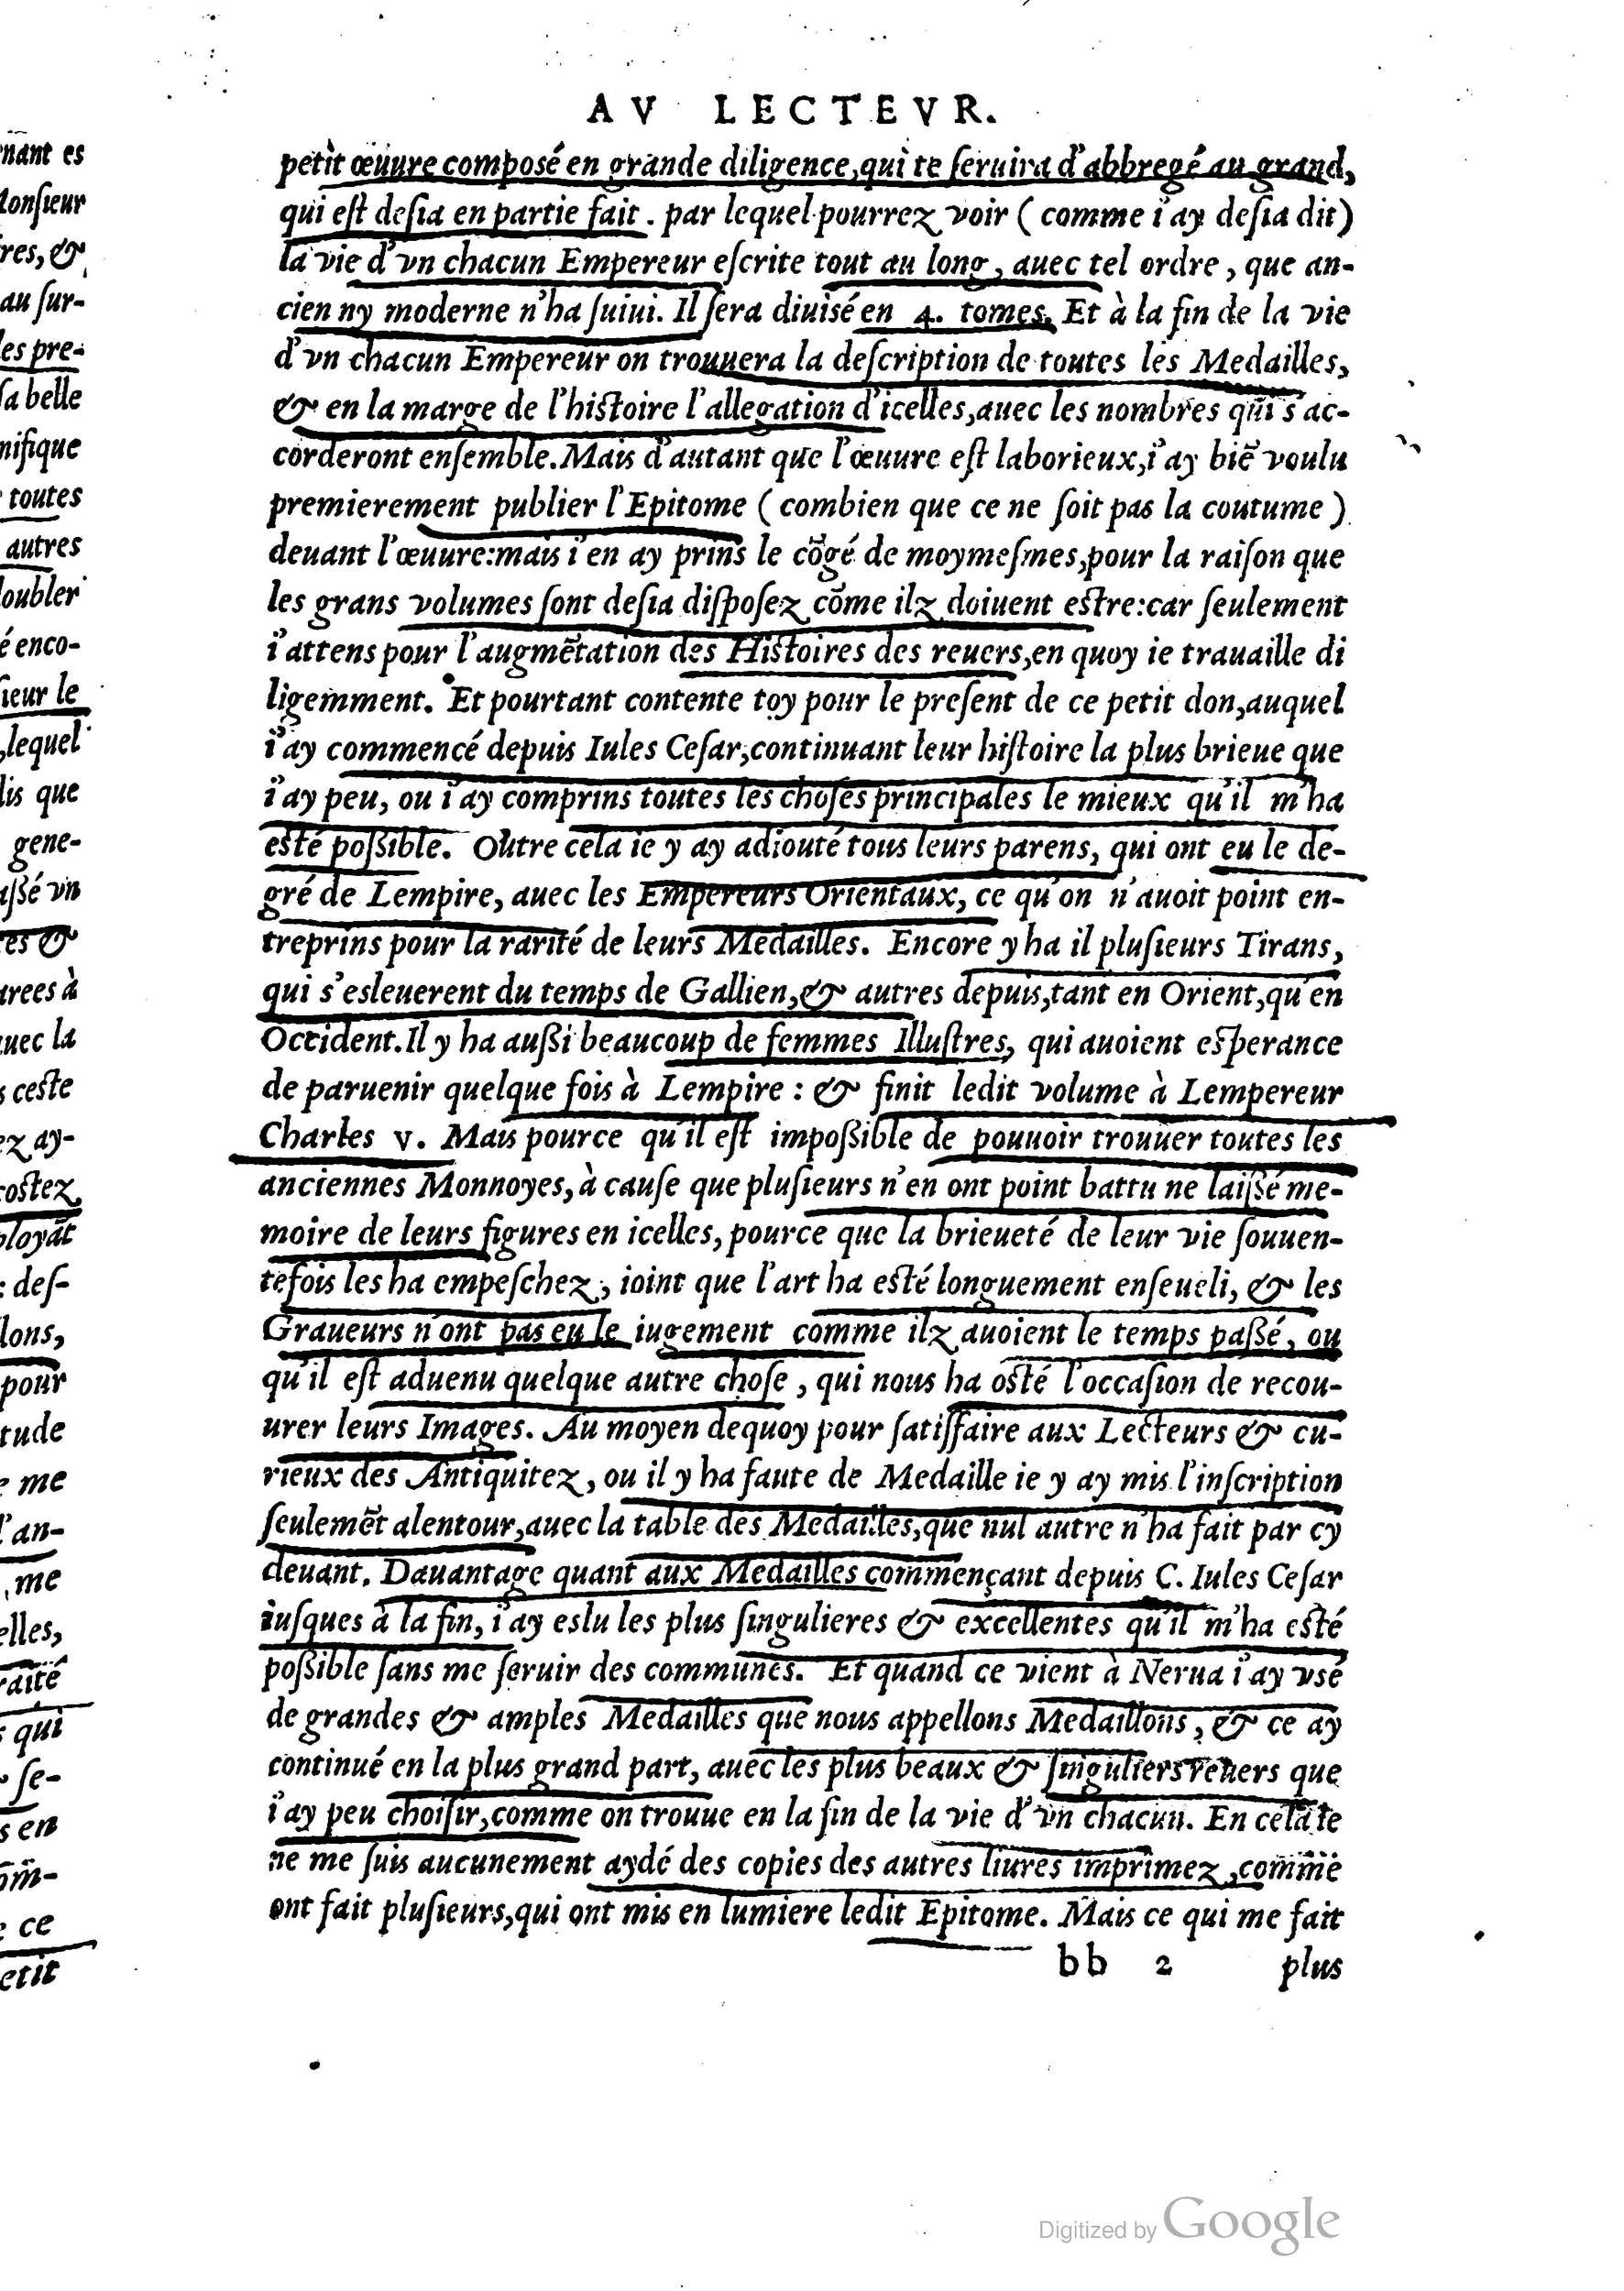 AV LECTEVR.
petit œuure composé en grande diligence, qui te seruira d'abbregé au grand,
qui est desia en partie fait. par lequel pourrez voir (comme i'ay desia dit)
la vie d'vn chacun Empereur escrite tout au long, auec tel ordre, que an-
cien ny moderne n'ha suiui. Il sera diuisé en 4. tomes. Et à la fin de la vie
d'vn chacun Empereur on trouuera la description de toutes les Medailles,
& en la marge de l'histoire l'allegation d'icelles, auec les nombres qui s'ac-
corderont ensemble. Mais d'autant que l'œuure est laborieux, i'ay biẽ voulu
premierement publier l'Epitome (combien que ce ne soit pas la coutume)
deuant l'œuure: mais i'en ay prins le cõgé de moymesmes, pour la raison que
les grans volumes sont desia disposez cõme ilz doiuent estre: car seulement
i'attens pour l'augmẽtation des Histoires des reuers, en quoy ie trauaille di
ligemment. Et pourtant contente toy pour le present de ce petit don, auquel
i'ay commencé depuis Iules Cesar, continuant leur histoire la plus brieue que
i'ay peu, ou i'ay comprins toutes les choses principales le mieux qu'il m'ha
esté possible. Outre cela ie y ay adiouté tous leurs parens, qui ont eu le de-
gré de Lempire, auec les Empereurs Orientaux, ce qu'on n'auoit point en-
treprins pour la rarité de leurs Medailles. Encore y ha il plusieurs Tirans,
qui s'esleuerent du temps de Gallien, & autres depuis, tant en Orient, qu'en
Occident. Il y ha aussi beaucoup de femmes Illustres, qui auoient esperance
de paruenir quelque fois à Lempire: & finit ledit volume à Lempereur
Charles v. Mais pource qu'il est impossible de pouuoir trouuer toutes les
anciennes Monnoyes, à cause que plusieurs n'en ont point battu ne laissé me-
moire de leurs figures en icelles, pource que la brieueté de leur vie souuen-
tefois les ha empeschez, ioint que l'art ha esté longuement enseueli, & les
Graueurs n'ont pas eu le iugement comme ilz auoient le temps passé, ou
qu'il est aduenu quelque autre chose, qui nous ha osté l'occasion de recou-
urer leurs Images. Au moyen dequoy pour satisfaire aux Lecteurs & cu-
rieux des Antiquitez, ou il y ha faute de Medaille ie y ay mis l'inscription
seulemẽt alentour, auec la table des Medailles, que nul autre n'ha fait par cy
deuant. Dauantage quant aux Medailles commençant depuis C. Iules Cesar
iusques à la fin, i'ay eslu les plus singulieres & excellentes qu'il m'ha esté
possible sans me seruir des communes. Et quand ce vient à Nerua i'ay vsé
de grandes & amples Medailles que nous appellons Medaillons, & ce ay
continué en la plus grand part, auec les plus beaux & singuliers reuers que
i'ay peu choisir, comme on trouue en la fin de la vie d'vn chacun. En cela ie
ne me suis aucunement aydé des copies des autres liures imprimez, comme
ont fait plusieurs, qui ont mis en lumiere ledit Epitome. Mais ce qui me fait
bb 2 plus
nant es
res, &
au sur-
les pre-
sa belle
nifique
toutes
autres
oubler
é enco-
sieur le
, lequel
lis que
gene-
ssé vn
es &
rees à
uec la
ceste
ez ay-
costez
ployãt
: des-
lons,
pour
tude
e me
l'an-
, me
elles,
raité
qui
se-
s en
õm-
e ce
etit
Digitized by Google